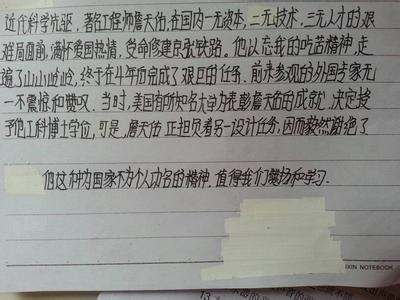 近代科学先驱，著名工程师詹天佑，在国内一无资本，二无技术，三无人才的艰
难局面前，满怀爱国热情，受命修建京张铁路。他以忘我的吃苦精神，走
遍了山山岭岭，终于在4年而完成了艰巨的任务。前来参观的外国专家无
一不震惊和赞叹。当时，美国有所知名大学为表彰詹天佑的成就，决定授
予他工科博士学位，可是，詹天佑正担负着另一设计任务，因而毅然谢绝了
他这种为国家不为个人功名的精神，值得我们赞扬和学习．
IXIN NOTEBOOK